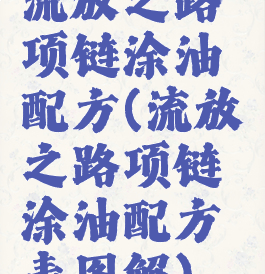 流放之路
项链涂油
配方(流放
之路项链
涂油配方
表图解)